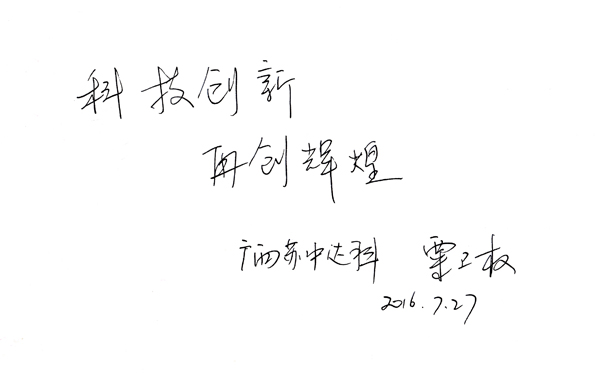 科技创新
再创辉煌
广西苏中达科 覃卫权
2016.7.27